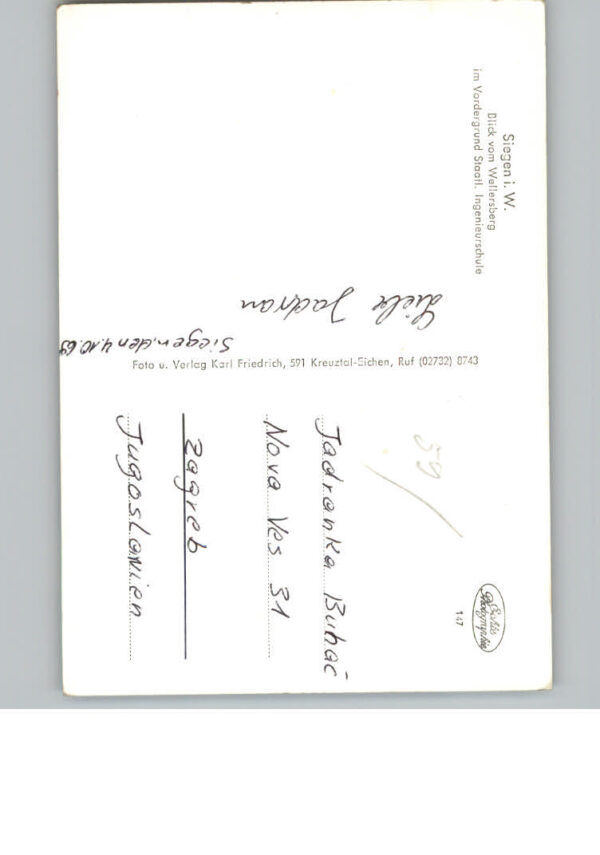 Siegen i. W.
Blick vom Wellersberg
im Vordergrund Staatl. Ingenieurschule
Liebe Jadran
Siegen, den 4.10.69
Foto u. Verlag Karl Friedrich, 591 Kreuztal-Eichen, Ruf (02732) 8743
59
Echte
Photographie
147
Jadranka Buhač
Nova Ves 31
Zagreb
Jugoslawien